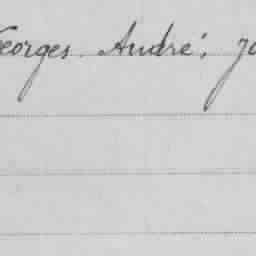 Georges André, Jo